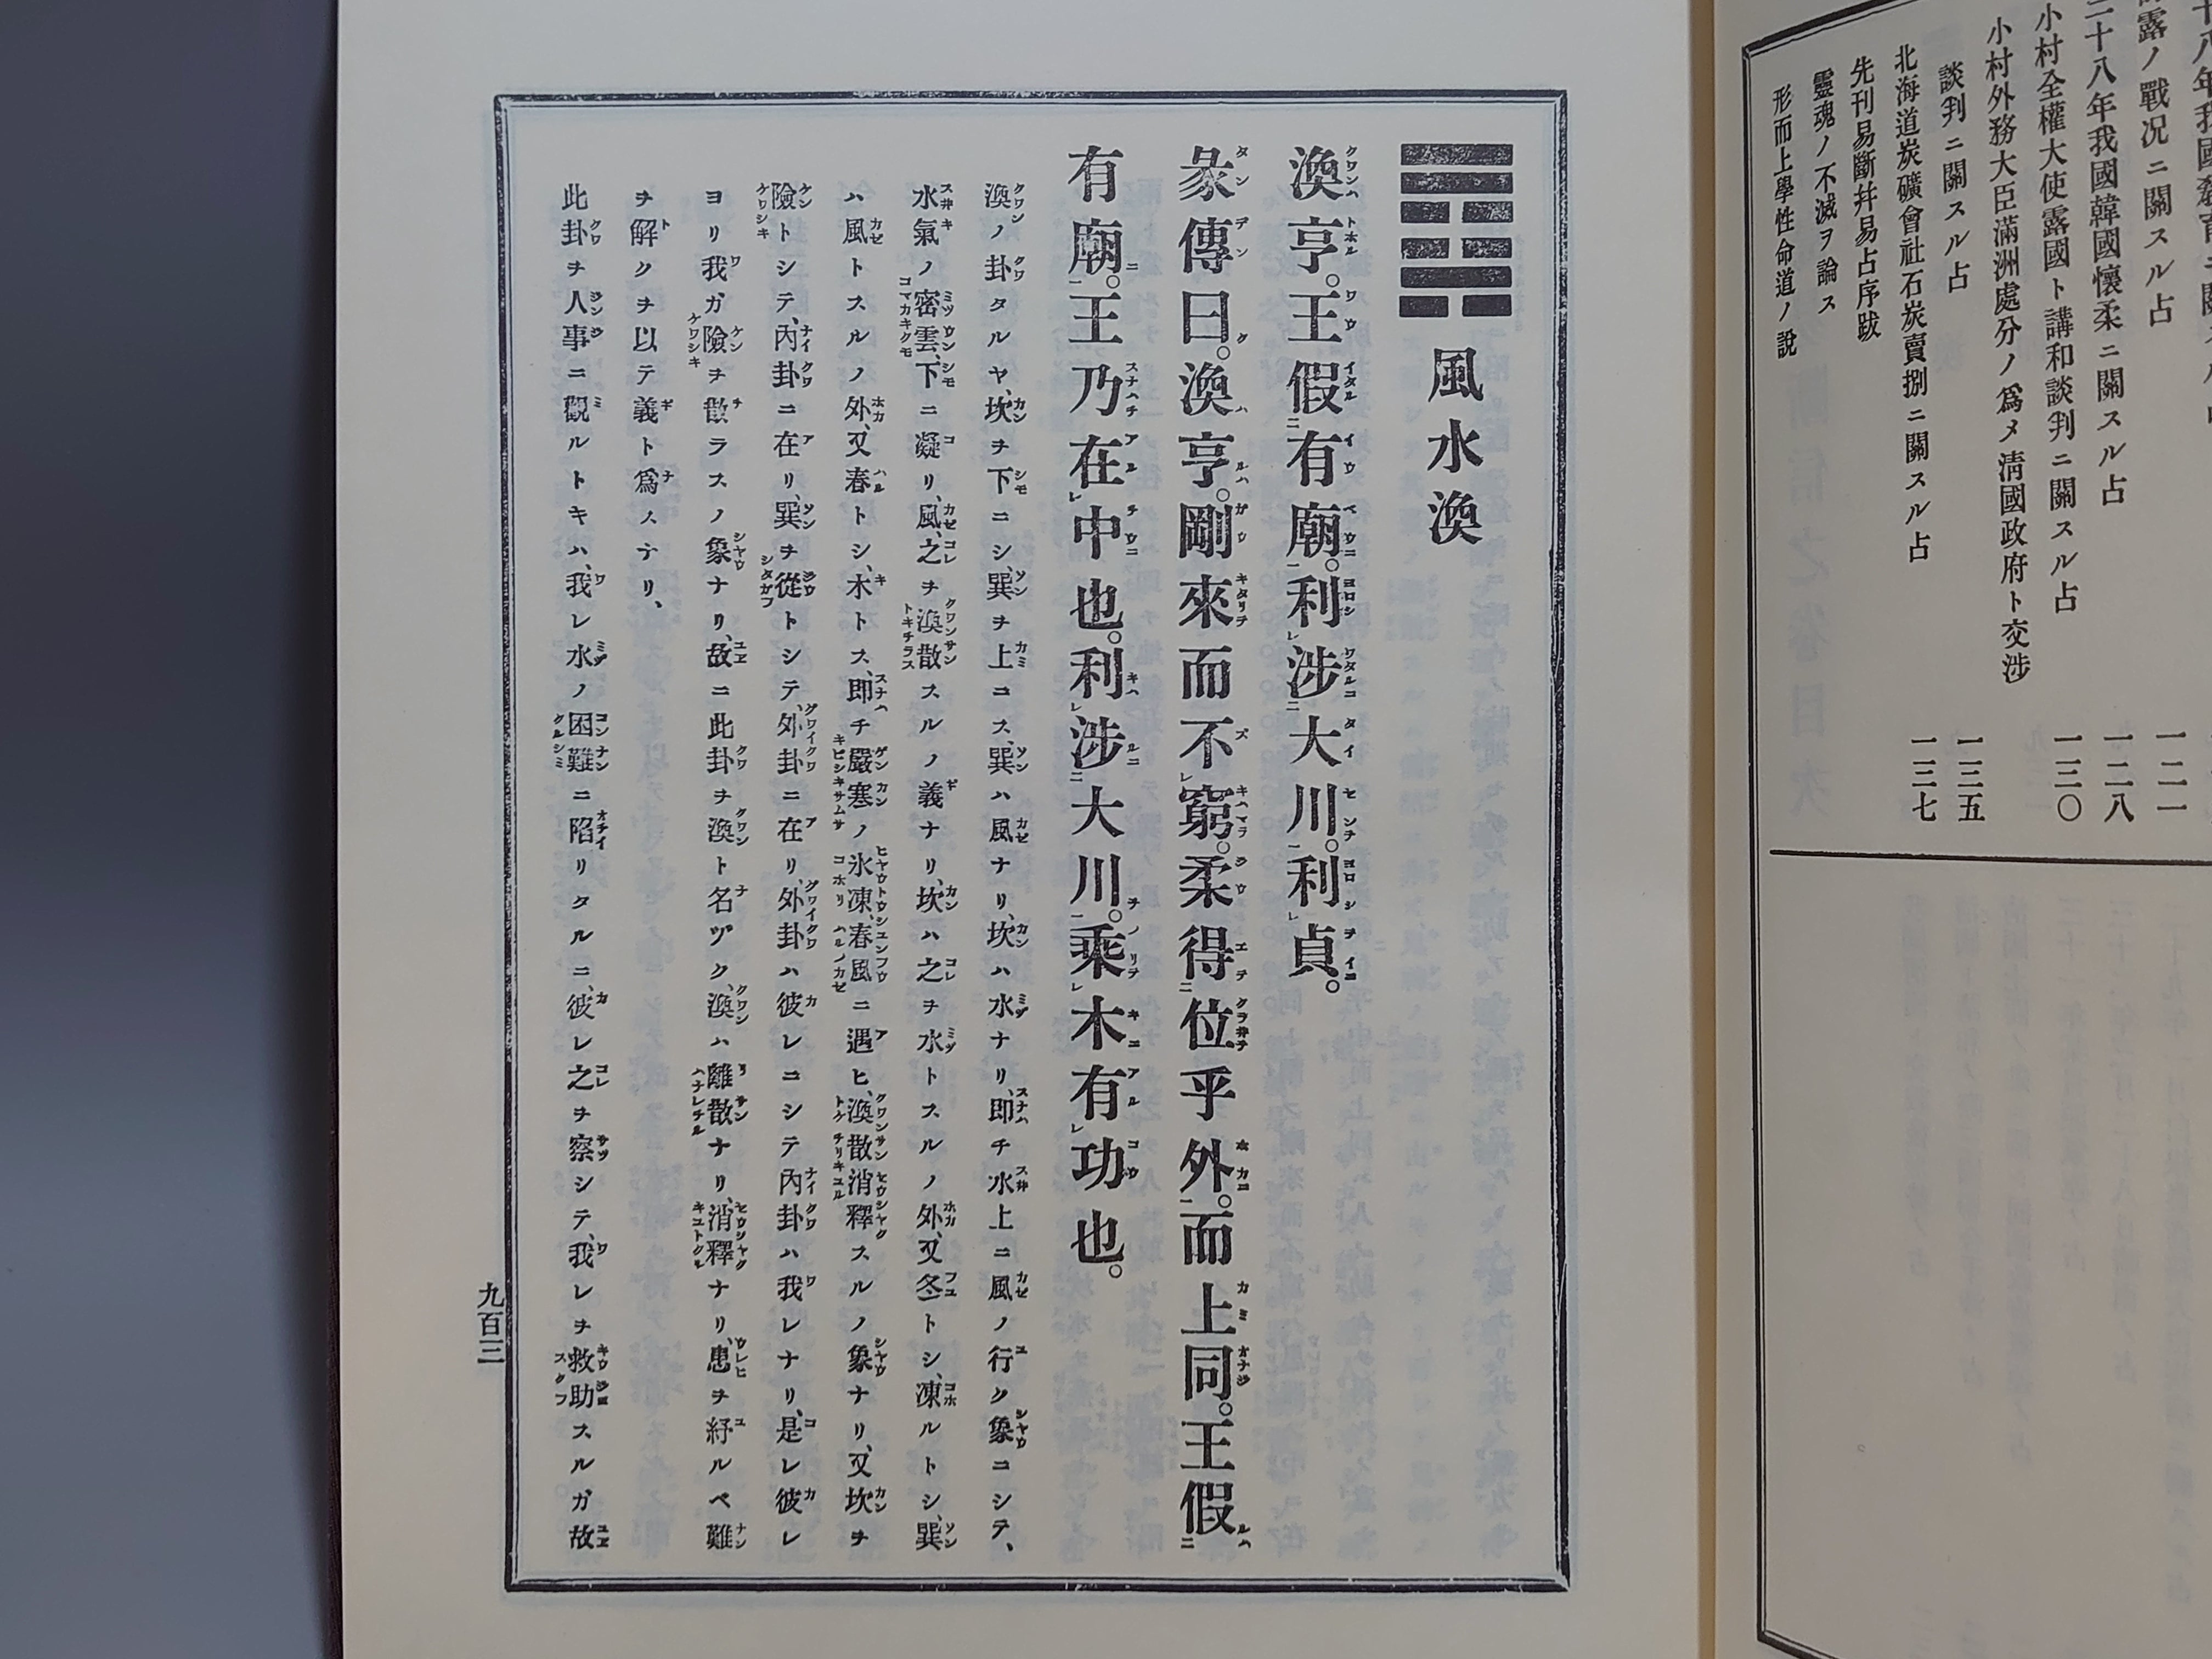 十八年我國
露ノ戰況ニ關スル占
一二一
二十八年我國韓國懷柔ニ關スル占
一二八
小村全權大使露國ト講和談判ニ關スル占
一三〇
小村外務大臣滿洲處分ノ爲メ清國政府ト交涉
談判ニ關スル占
一三五
北海道炭礦會社石炭賣捌ニ關スル占
一三七
先刊易斷幷易占序跋
靈魂ノ不滅ヲ論ス
形而上學性命道ノ說
風水渙
渙亨。王假有廟。利涉大川。利貞。
彖傳曰。渙亨。剛來而不窮。柔得位乎外。而上同。王假
有廟。王乃在中也。利涉大川。乘木有功也。
渙ノ卦タルヤ、坎ヲ下ニシ、巽ヲ上ニス、巽ハ風ナリ、坎ハ水ナリ、即チ水上ニ風ノ行ク象ニシテ、
水氣ノ密雲、下ニ凝リ、風、之ヲ渙散スルノ義ナリ、坎ハ之ヲ水トスルノ外、又冬トシ、凍ルトシ、巽
ハ風トスルノ外、又春トシ、木トス、即チ嚴寒ノ氷凍、春風ニ遇ヒ、渙散消釋スルノ象ナリ、又坎ヲ
險トシテ、內卦ニ在リ、巽ヲ從トシテ、外卦ニ在リ、外卦ハ彼レニシテ內卦ハ我レナリ、是レ彼レ
ヨリ我ガ險ヲ散ラスノ象ナリ、故ニ此卦ヲ渙ト名ヅク、渙ハ離散ナリ、消釋ナリ、患ヲ紓ルベ難
ヲ解クヲ以テ義ト爲スナリ、
此卦ヲ人事ニ觀ルトキハ、我レ水ノ困難ニ陷リタルニ、彼レ之ヲ察シテ、我レヲ救助スルガ故
九百三